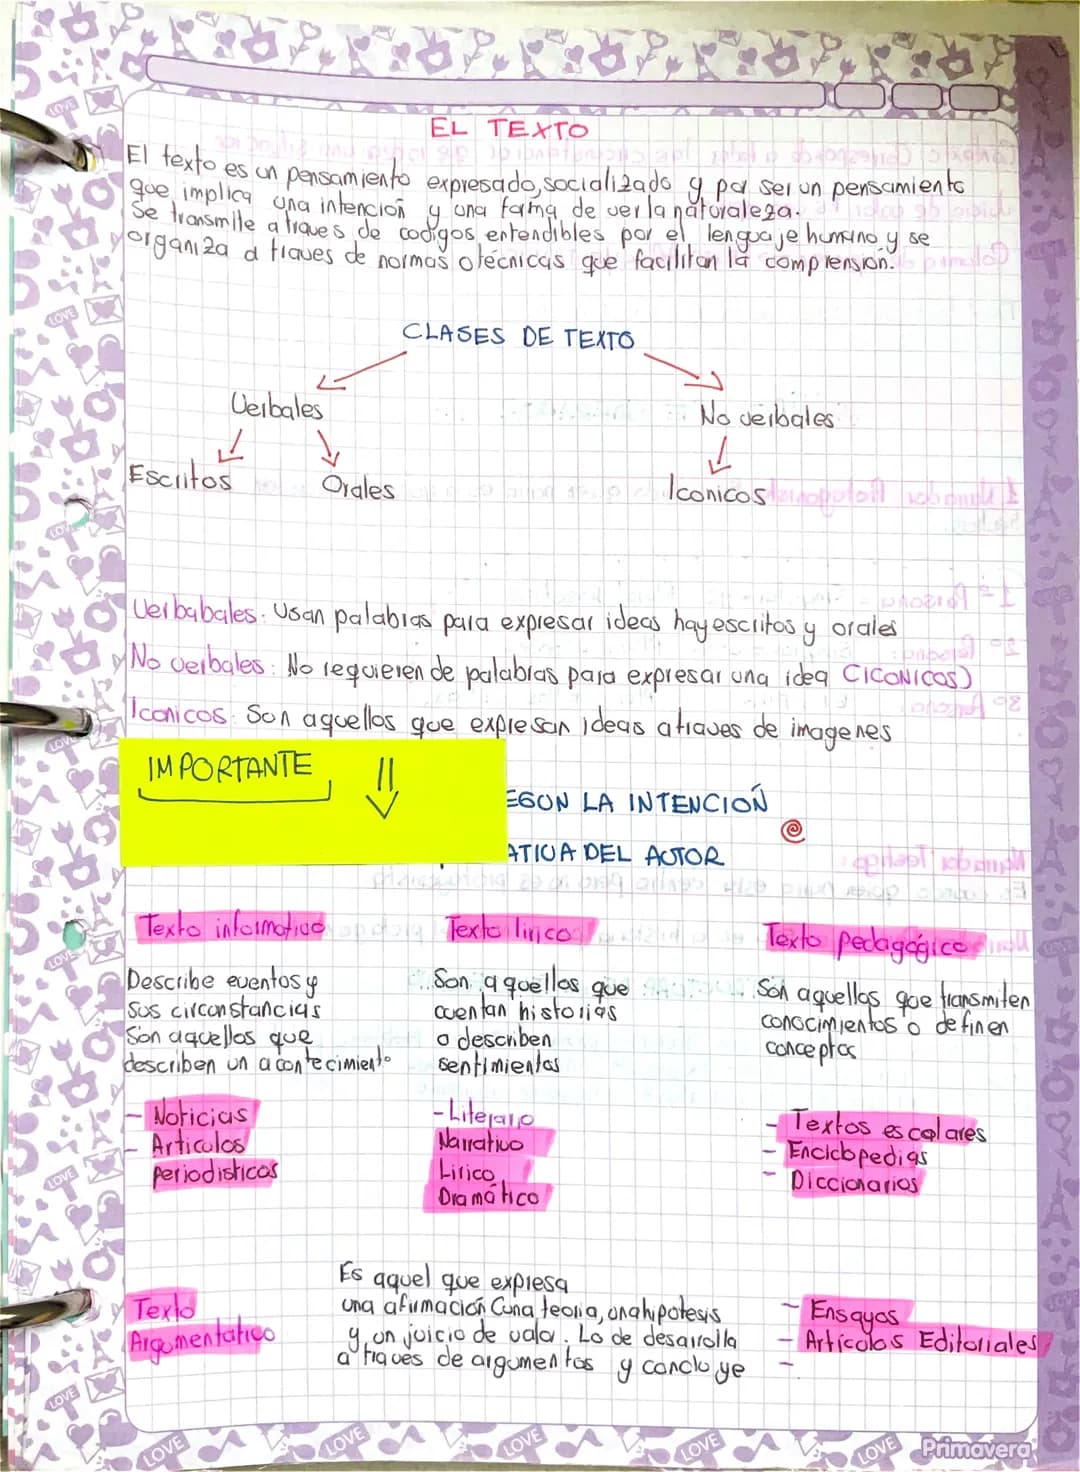 EL TEXTO
El texto es un pensamiento expresado, socializado y por ser un pensamiento
que implica una intención y una forma de ver la naturaleza.
Se transmite a traves de codigos entendibles por el lenguaje humano y se
organiza a traves de normas o técnicas que facilitan la comprensión.
CLASES DE TEXTO
Verbales No verbales
Escritos Orales Iconicos
Verbabales: Usan palabras para expresar ideas hay escritos y orales
No verbales: No requieren de palabras para expresar una idea (ICONICOS)
Iconicos: Son aquellos que expresan ideas atraves de imagenes
IMPORTANTE
EGUN LA INTENCIÓN
ATIVA DEL AUTOR
Texto informativo Texto lirico Texto pedagógico
Describe eventos y Son aquellos que Son aquellos que transmiten
sus circonstancias cuentan historias conocimientos o definen
Son aquellos que o describen conceptos
describen un acontecimiento sentimientos
- Noticias - Literario - Textos escolares
- Articulos Narrativo - Enciclopedias
periodisticos Lirico - Diccionarios
Dramático
Es aquel que expresa
Texto una afirmación (una teoria, una hipotesis - Ensayos
Argumentativo y un juicio de valor. Lo desarrolla - Articulos Editoriales
a traves de argumentos y concluye -
LOVE LOVE LOVE LOVE LOVE Primavera